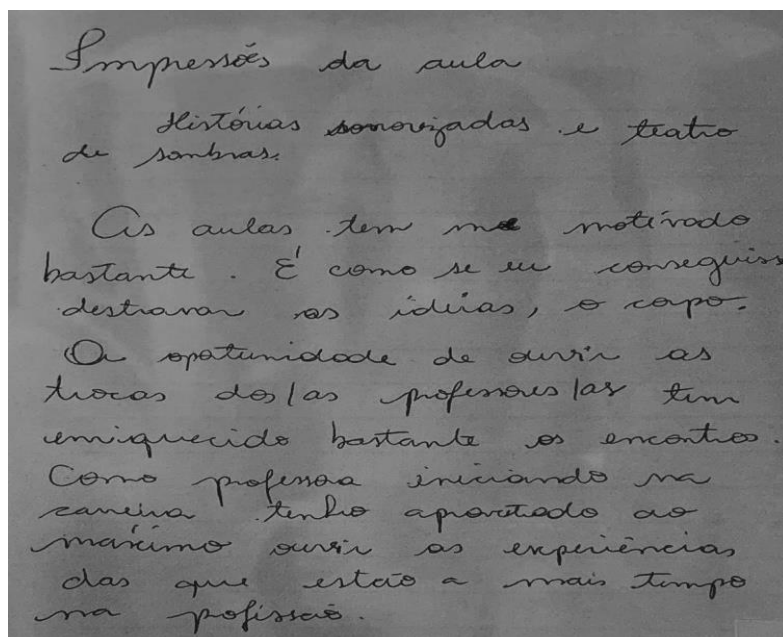 Impressões da aula
Histórias sonorizadas e teatro
de sombras.
As aulas tem me motivado
bastante. É como se eu conseguiss
destravar as idéias, o corpo.
A oportunidade de ouvir as
trocas dos/as professores/as tem
enriquecido bastante os encontros.
Como professora iniciando na
carreira tenho aproveitado ao
máximo ouvir as experiências
das que estão a mais tempo
na profissão.